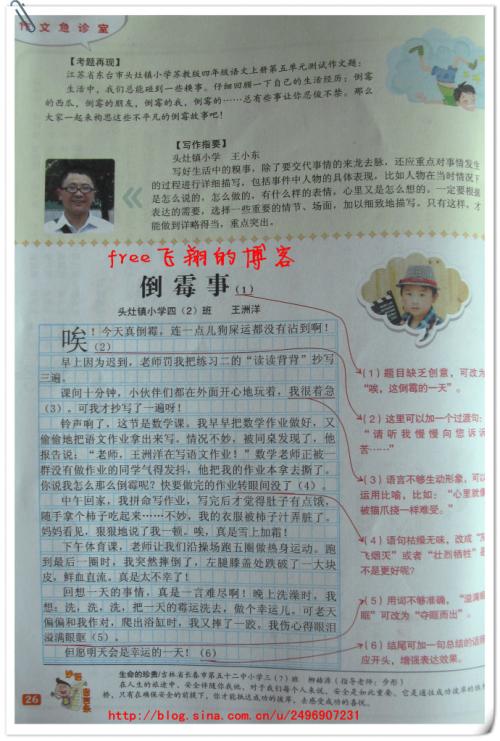 作文急诊室
【考题再现】
江苏省东台市头灶镇小学苏教版四年级语文上册第五单元测试作文题：
生活中，我们总能碰到一些糗事。仔细回顾一下自己的生活经历：倒霉
的西瓜，倒霉的朋友，倒霉的我，倒霉的……总有些事让你忍俊不禁。那么
大家一起来构思这些不平凡的倒霉故事吧！
【写作指要】
头灶镇小学 王小东
写好生活中的糗事，除了要交代事情的来龙去脉，还应重点对事情发生
的过程进行详细描写，包括事件中人物的具体表现，比如人物在当时情况下
是怎么说的，怎么做的，有什么样的表情，心里又是怎么想的，一定要根据
表达的需要，选择一些重要的情节、场面，加以细致地描写。只有这样，才
能做到详略得当，重点突出。
free飞翔的博客
倒霉事（1）
头灶镇小学四（2）班 王洲洋
唉！今天真倒霉，连一点儿狗屎运都没有沾到啊！
（2）
早上因为迟到，老师罚我把练习二的“读读背背”抄写
三遍。
课间十分钟，小伙伴们都在外面开心地玩着，我很着急
（3）。可我才抄写了一遍呀！
铃声响了，这节是数学课。我早早把数学作业做好，又
偷偷地把语文作业拿出来写。情况不妙，被同桌发现了，他
报告说：“老师，王洲洋在写语文作业！”数学老师正被一
群没有做作业的同学气得发抖，他把我的作业本拿去撕了。
你说我怎么那么倒霉呢？快要做完的作业转眼间没了（4）。
中午回家，我拼命写作业，写完后才觉得肚子有点饿，
随手拿个柿子吃起来……不妙，我的衣服被柿子汁弄脏了。
妈妈看见，狠狠地说了我一顿。唉，真是雪上加霜！
下午体育课，老师让我们沿操场跑五圈做热身运动。跑
到最后一圈时，我突然摔倒了，左腿膝盖处跌破了一大块
皮，鲜血直流。真是太不幸了！
回想一天的事情，真是一言难尽啊！晚上洗澡时，我
想：洗，洗，洗，把一天的霉运洗去，做个幸运儿。可老天
偏偏和我作对，爬出浴缸时，我又摔了一跤，我伤心得眼泪
溢满眼眶（5）。
但愿明天会是幸运的一天！（6）
（1）题目缺乏创意，可改为
“唉，这倒霉的一天”。
（2）这里可以加一个过渡句：
“请听我慢慢向您诉诉
苦……”
（3）语言不够生动形象，可以
运用比喻，比如：“心里就像
被猫爪挠一样难受。”
（4）语句枯燥无味，改成“灰
飞烟灭”或者“壮烈牺牲”是
不是更好呢？
（5）用词不够准确，“溢满眼
眶”可改为“夺眶而出”。
（6）结尾可加一句总结的话呼
应开头，增强表达效果。
生命的珍贵/吉林省长春市第五十二中小学三（7）班
26
在人生的旅途中，安全伴随你我他，对于我们每个人来说，安全是如此重要，它是通往成功彼岸的铁
桥，只有在确保安全的前提下，你才能抵达成功的彼岸，去感受成功的喜悦。
http://blog.sina.com.cn/u/2496907231